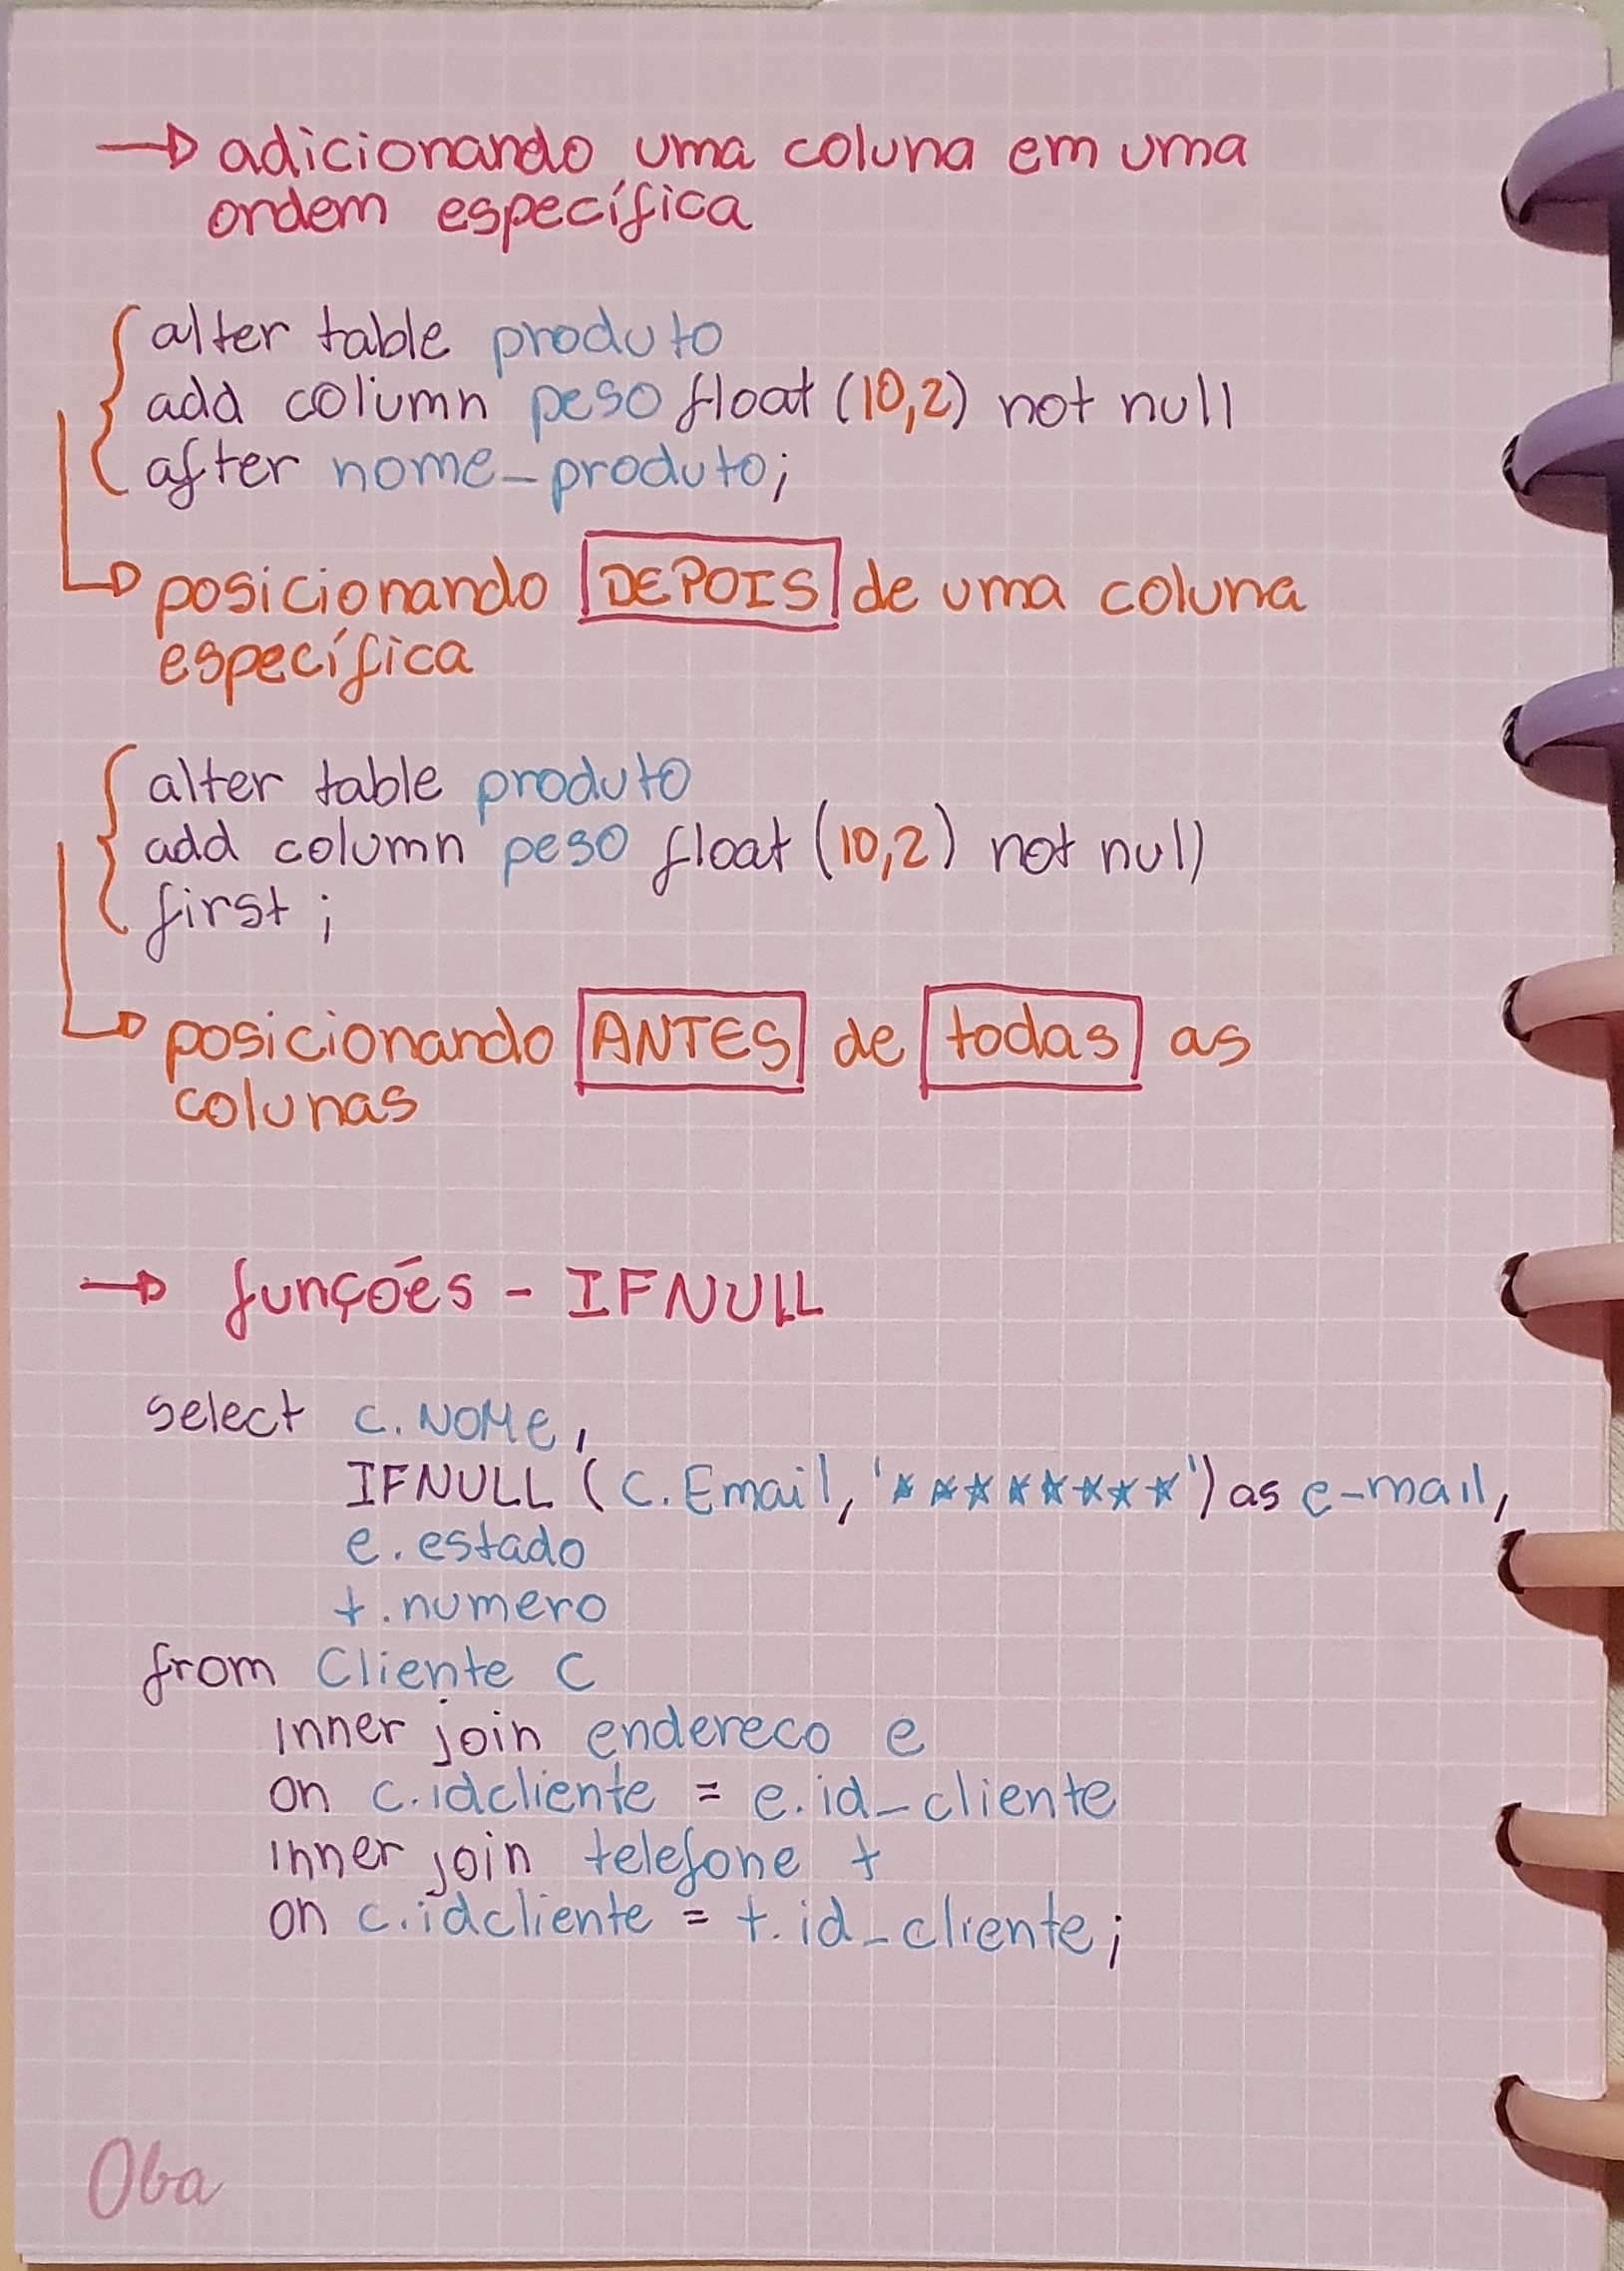 → adicionando uma coluna em uma
ordem específica
alter table produto
add column peso float (10,2) not null
after nome_produto;
→ posicionando DEPOIS de uma coluna
específica
alter table produto
add column peso float (10,2) not null
first ;
→ posicionando ANTES de todas as
colunas
→ funções - IFNULL
select c.NOME,
IFNULL (c.Email, '********') as e-mail,
e.estado
t.numero
from Cliente C
inner join endereco e
on c.idcliente = e.id_cliente
inner join telefone t
on c.idcliente = t.id_cliente;
Oba